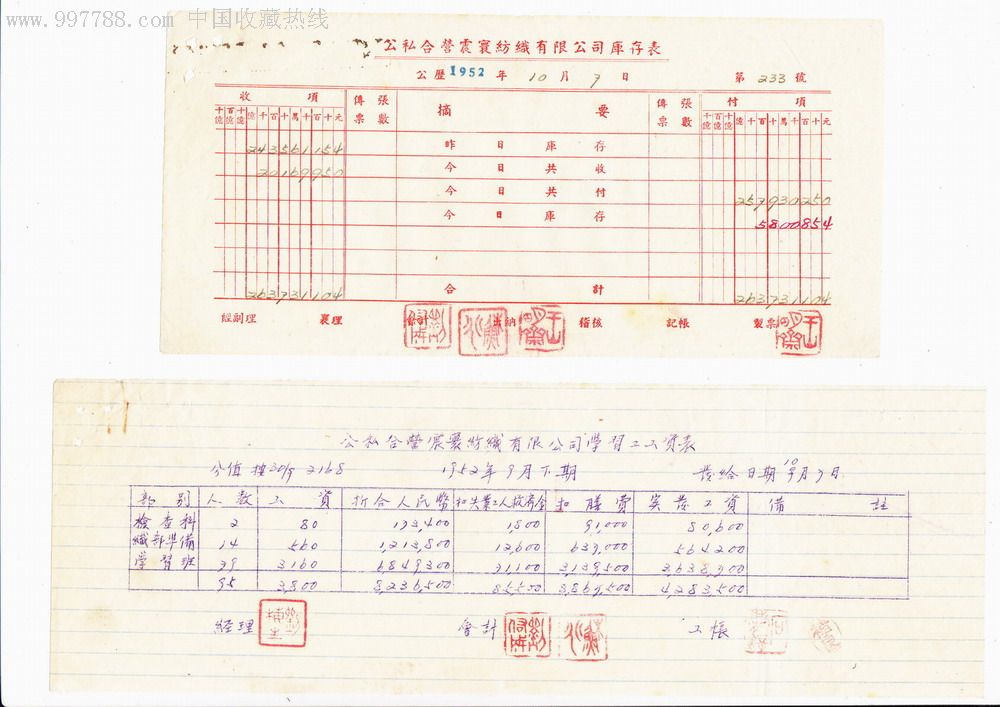 www.997788.com 中国收藏热线
公私合營震寰紡織有限公司庫存表
公歷1952年10月9日 第233號
收項 傳票張數 摘要 傳票張數 付項
十億 百億 十億 億千百十萬千百十元 十億 百億 十億 億千百十萬千百十元
243561154 昨日庫存
20169950 今日共收
今日共付 257930250
今日庫存 5800854
263731104 合計 263731104
經副理 襄理 會計 出納 稽核 記帳 製票
公私合營震寰紡織有限公司學習工工資表
分值按30/9 2168 1952年9月下期 發給日期10月9日
部別 人數 工資 折合人民幣 扣失業工人救濟金 扣膳費 實發工資 備註
檢查科 2 80 173,400 1,800 91,000 80,600
織部準備 14 560 1,213,800 12,600 637,000 564,200
學習班 79 3160 6,849,300 71,100 3,139,500 3,638,700
95 3,800 8,236,500 85,500 3,867,500 4,283,500
經理 會計 工帳